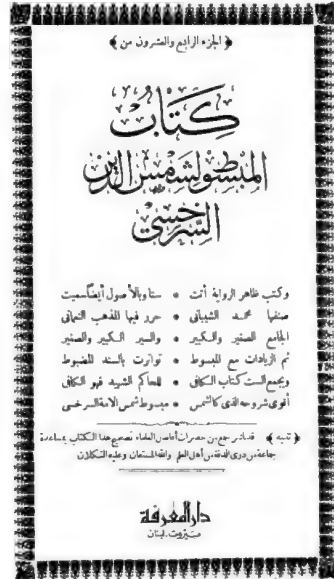 ﴿ الجزء الرابع والعشرون من ﴾
كتاب
المبسوط لشمس الدين
السرخسي
وكتب ظاهر الرواية أتت • ستا وبالأصول أيضاً سميت
صنفها محمد الشيباني • حرر فيها المذهب النعماني
الجامع الصغير والكبير • والسير الكبير والصغير
ثم الزيادات مع المبسوط • تواترت بالسند المضبوط
ويجمع الست كتاب الكافي • للحاكم الشهيد فهو الكافي
أقوى شروحه الذي كالشمس • مبسوط شمس الأمة السرخسي
﴿ تنبيه ﴾ قد باشر جمع من حضرات أفاضل العلماء تصحيح هذا الكتاب بمساعدة
جماعة من ذوي الدقة من أهل العلم والله المستعان وعليه التكلان
دار المعرفة
بيروت - لبنان